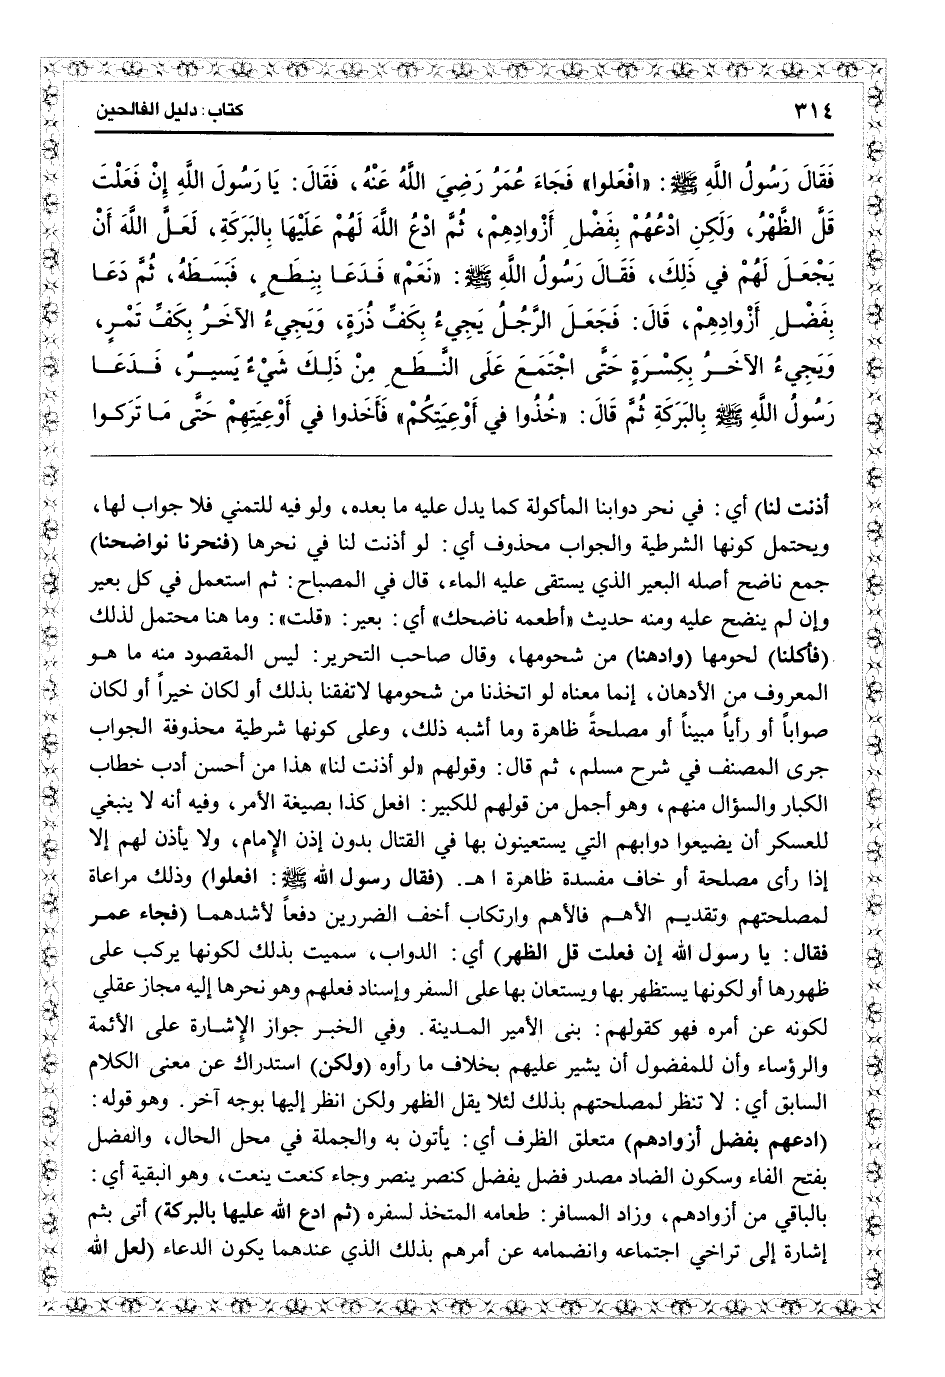 ٣١٤
كتاب: دليل الفالحين
فَقَالَ رَسُولُ اللَّهِ ﷺ: «افْعَلوا» فَجَاءَ عُمَرُ رَضِيَ اللَّهُ عَنْهُ، فَقَالَ: يَا رَسُولَ اللَّهِ إِنْ فَعَلْتَ
قَلَّ الظَّهْرُ، وَلَكِنِ ادْعُهُمْ بِفَضْلِ أَزْوادِهِمْ، ثُمَّ ادْعُ اللَّهَ لَهُمْ عَلَيْهَا بِالبَرَكَةِ، لَعَلَّ اللَّهَ أَنْ
يَجْعَلَ لَهُمْ في ذَلِكَ، فَقَالَ رَسُولُ اللَّهِ ﷺ: «نَعَمْ» فَدَعَا بِنِطَعٍ، فَبَسَطَهُ، ثُمَّ دَعَا
بِفَضْلِ أَزْوادِهِمْ، قَالَ: فَجَعَلَ الرَّجُلُ يَجِيءُ بِكَفِّ ذُرَةٍ، وَيَجِيءُ الآخَرُ بِكَفِّ تَمْرٍ،
وَيَجِيءُ الآخَرُ بِكِسْرَةٍ حَتَّى اجْتَمَعَ عَلَى النَّطَعِ مِنْ ذَلِكَ شَيْءٌ يَسيرٌ، فَدَعَا
رَسُولُ اللَّهِ ﷺ بِالبَرَكَةِ ثُمَّ قَالَ: «خُذُوا في أَوْعِيَتِكُمْ» فَأَخَذوا في أَوْعِيَتِهِمْ حَتَّى مَا تَرَكوا
أذنت لنا) أي: في نحر دوابنا المأكولة كما يدل عليه ما بعده، ولو فيه للتمني فلا جواب لها،
ويحتمل كونها الشرطية والجواب محذوف أي: لو أذنت لنا في نحرها (فنحرنا نواضحنا)
جمع ناضح أصله البعير الذي يستقى عليه الماء، قال في المصباح: ثم استعمل في كل بعير
وإن لم ينضح عليه ومنه حديث «أطعمه ناضحك» أي: بعير: «قلت»: وما هنا محتمل لذلك
(فأكلنا) لحومها (وادهنا) من شحومها، وقال صاحب التحرير: ليس المقصود منه ما هو
المعروف من الأدهان، إنما معناه لو اتخذنا من شحومها لاتفقنا بذلك أو لكان خيراً أو لكان
صواباً أو رأياً مبيناً أو مصلحةً ظاهرة وما أشبه ذلك، وعلى كونها شرطية محذوفة الجواب
جرى المصنف في شرح مسلم، ثم قال: وقولهم «لو أذنت لنا» هذا من أحسن أدب خطاب
الكبار والسؤال منهم، وهو أجمل من قولهم للكبير: افعل كذا بصيغة الأمر، وفيه أنه لا ينبغي
للعسكر أن يضيعوا دوابهم التي يستعينون بها في القتال بدون إذن الإمام، ولا يأذن لهم إلا
إذا رأى مصلحة أو خاف مفسدة ظاهرة ا هـ. (فقال رسول الله ﷺ: افعلوا) وذلك مراعاة
لمصلحتهم وتقديم الأهم فالأهم وارتكاب أخف الضررين دفعاً لأشدهما (فجاء عمر
فقال: يا رسول الله إن فعلت قل الظهر) أي: الدواب، سميت بذلك لكونها يركب على
ظهورها أو لكونها يستظهر بها ويستعان بها على السفر وإسناد فعلهم وهو نحرها إليه مجاز عقلي
لكونه عن أمره فهو كقولهم: بنى الأمير المدينة. وفي الخبر جواز الإشارة على الأئمة
والرؤساء وأن للمفضول أن يشير عليهم بخلاف ما رأوه (ولكن) استدراك عن معنى الكلام
السابق أي: لا تنظر لمصلحتهم بذلك لئلا يقل الظهر ولكن انظر إليها بوجه آخر. وهو قوله:
(ادعهم بفضل أزوادهم) متعلق الظرف أي: يأتون به والجملة في محل الحال، والفضل
بفتح الفاء وسكون الضاد مصدر فضل يفضل كنصر ينصر وجاء كنعت ينعت، وهو البقية أي:
بالباقي من أزوادهم، وزاد المسافر: طعامه المتخذ لسفره (ثم ادع الله عليها بالبركة) أتى بثم
إشارة إلى تراخي اجتماعه وانضمامه عن أمرهم بذلك الذي عندهما يكون الدعاء (لعل الله